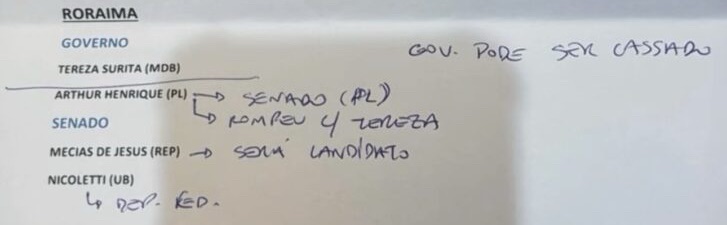 RORAIMA
GOVERNO
GOV. PODE SER CASSADO
TEREZA SURITA (MDB)
ARTHUR HENRIQUE (PL) → SENADO (PL)
↳ ROMPEU C/ TEREZA
SENADO
MECIAS DE JESUS (REP) → SERÁ CANDIDATO
NICOLETTI (UB)
↳ DEP. FED.